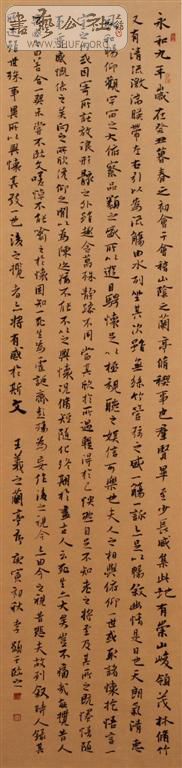 永和九年歲在癸丑暮春之初會于會稽山陰之蘭亭脩禊事也羣賢畢至少長咸集此地有崇山峻領茂林脩竹
又有清流激湍映帶左右引以為流觴曲水列坐其次雖無絲竹管弦之盛一觴一詠亦足以暢敘幽情是日也天朗氣清惠
風和暢仰觀宇宙之大俯察品類之盛所以遊目騁懷足以極視聽之娛信可樂也夫人之相與俯仰一世或取諸懷抱悟言一
室之內或因寄所託放浪形骸之外雖趣舍萬殊靜躁不同當其欣於所遇暫得於己快然自足不知老之將至及其所之既惓情隨
事遷感慨係之矣向之所欣俯仰之間以為陳迹猶不能不以之興懷況脩短隨化終期於盡古人云死生亦大矣豈不痛哉每攬昔人
興感之由若合一契未嘗不臨文嗟悼不能喻之於懷固知一死生為虛誕齊彭殤為妄作後之視今亦由今之視昔悲夫故列敘時人錄其
所述雖世殊事異所以興懷其致一也後之攬者亦將有感於斯文 王羲之蘭亭序 庚寅初秋 李